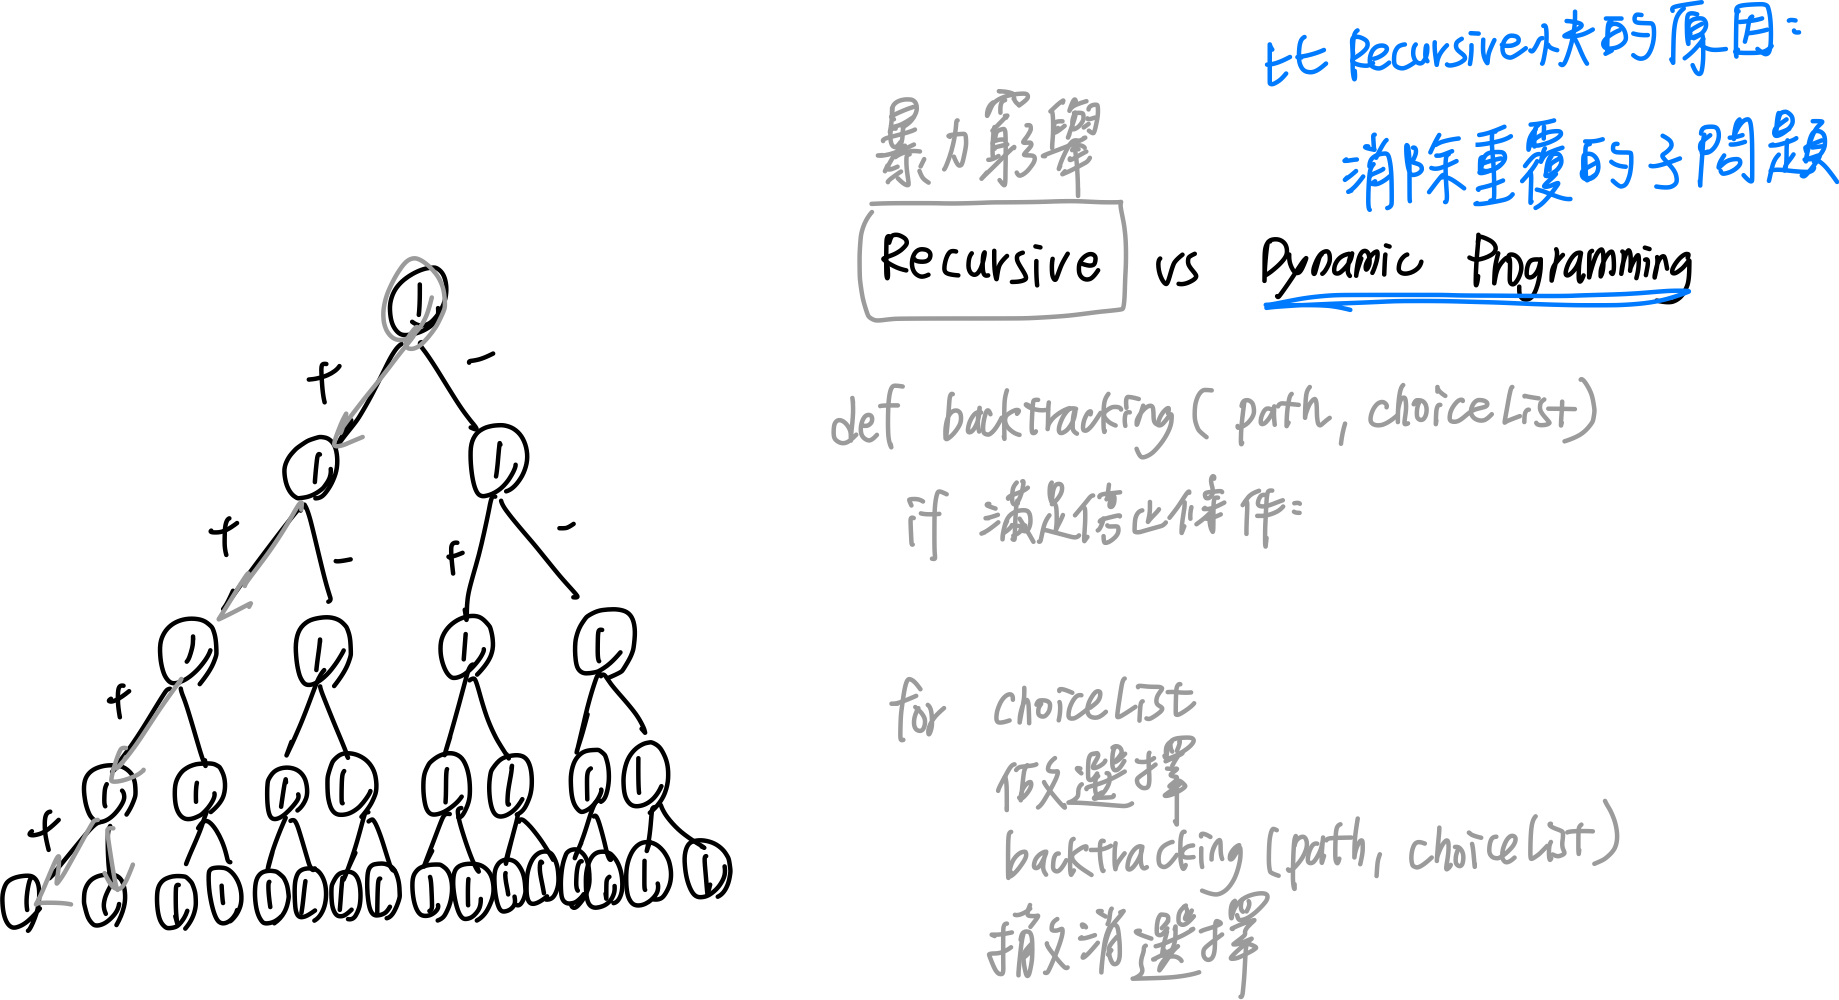 比 Recursive快的原因:
消除重覆的子問題
暴力窮舉
Recursive vs Dynamic Programming
def backtracking ( path, choiceList)
if 滿足停止條件:
for choiceList
做選擇
backtracking (path, choiceList)
撤消選擇
1
+ -
1 1
+ - + -
1 1 1 1
+
1 1 1 1 1 1 1 1
+
1 1 1 1 1 1 1 1 1 1 1 1 1 1 1 1